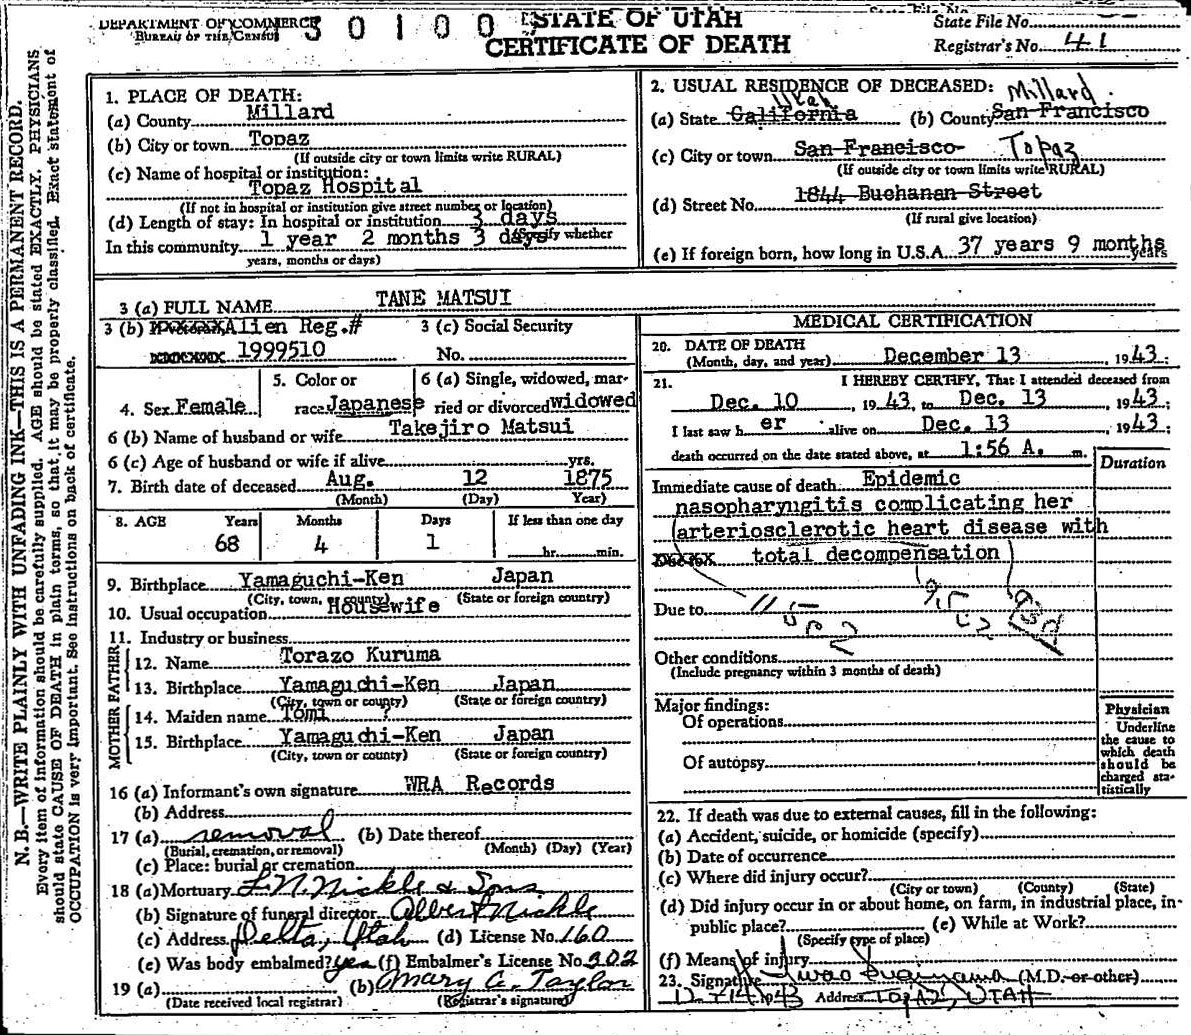 DEPARTMENT OF COMMERCE
BUREAU OF THE CENSUS
3 0 1 0 0
STATE OF UTAH
CERTIFICATE OF DEATH
State File No.
Registrar's No. 41
N. B.—WRITE PLAINLY WITH UNFADING INK—THIS IS A PERMANENT RECORD.
Every item of information should be carefully supplied. AGE should be stated EXACTLY. PHYSICIANS
should state CAUSE OF DEATH in plain terms, so that it may be properly classified. Exact statement of
OCCUPATION is very important. See instructions on back of certificate.
1. PLACE OF DEATH:
(a) County Millard
(b) City or town Topaz
(If outside city or town limits write RURAL)
(c) Name of hospital or institution:
Topaz Hospital
(If not in hospital or institution give street number or location)
(d) Length of stay: In hospital or institution 3 days
(Specify whether
In this community 1 year 2 months 3 days
years, months or days)
2. USUAL RESIDENCE OF DECEASED:
(a) State California Utah (b) County San Francisco Millard
(c) City or town San Francisco Topaz
(If outside city or town limits write RURAL)
(d) Street No. 1844 Buchanan Street
(If rural give location)
(e) If foreign born, how long in U.S.A. 37 years 9 months
years
3 (a) FULL NAME TANE MATSUI
3 (b) Alien Reg.# 1999510
3 (c) Social Security
No.
4. Sex Female
5. Color or
race Japanese
6 (a) Single, widowed, mar-
ried or divorced widowed
6 (b) Name of husband or wife Takejiro Matsui
6 (c) Age of husband or wife if alive yrs.
7. Birth date of deceased Aug. 12 1875
(Month) (Day) Year)
8. AGE Years Months Days If less than one day
68 4 1 hr. min.
9. Birthplace Yamaguchi-Ken Japan
(City, town, or county) (State or foreign country)
10. Usual occupation Housewife
11. Industry or business
FATHER
12. Name Torazo Kuruma
13. Birthplace Yamaguchi-Ken Japan
(City, town or county) (State or foreign country)
MOTHER
14. Maiden name Tomi ?
15. Birthplace Yamaguchi-Ken Japan
(City, town or county) (State or foreign country)
16 (a) Informant's own signature WRA Records
(b) Address
17 (a) removal (b) Date thereof
(Burial, cremation, or removal) (Month) (Day) (Year)
(c) Place: burial or cremation
18 (a) Mortuary L.N. Nickle & Sons
(b) Signature of funeral director Albert Nickle
(c) Address Delta, Utah (d) License No. 160
(e) Was body embalmed? yes (f) Embalmer's License No. 302
19 (a) (b) Mary A. Taylor
(Date received local registrar) (Registrar's signature)
MEDICAL CERTIFICATION
20. DATE OF DEATH
(Month, day, and year) December 13, 1943;
21. I HEREBY CERTIFY, That I attended deceased from
Dec. 10, 1943, to Dec. 13, 1943;
I last saw her alive on Dec. 13 1943;
death occurred on the date stated above, at 1:56 A. m.
Duration
Immediate cause of death Epidemic
nasopharyngitis complicating her
arteriosclerotic heart disease with
total decompensation
Due to
93d
Other conditions
(Include pregnancy within 3 months of death)
Major findings:
Of operations
Of autopsy
Physician
Underline
the cause to
which death
should be
charged sta-
tistically
22. If death was due to external causes, fill in the following:
(a) Accident, suicide, or homicide (specify)
(b) Date of occurrence
(c) Where did injury occur?
(City or town) (County) (State)
(d) Did injury occur in or about home, on farm, in industrial place, in-
public place? (e) While at Work?
(Specify type of place)
(f) Means of injury
23. Signature (M.D. or other)
1943 Address TOPAZ, UTAH